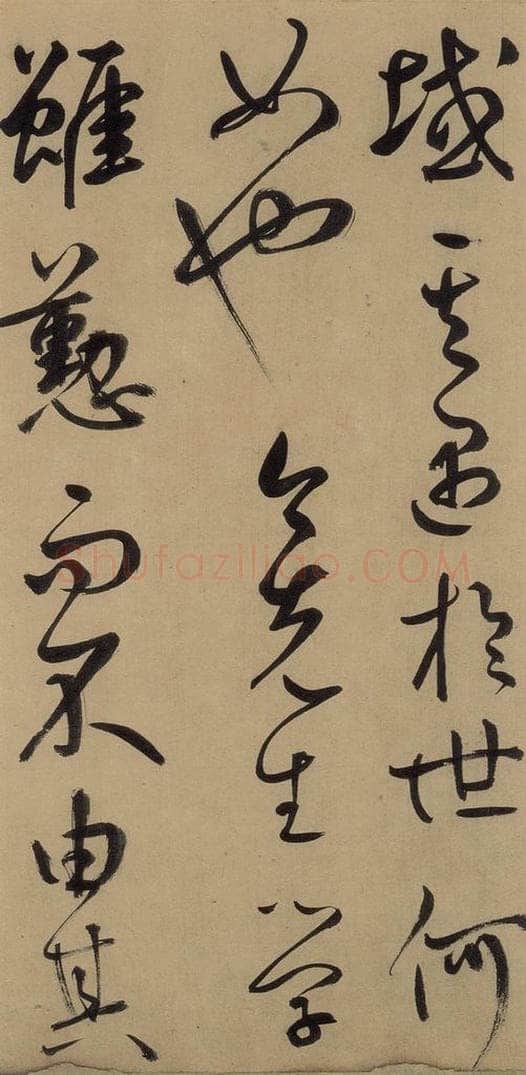 域其遇於世何
如也今先生學
雖懃而不由其
Shufaziliao.COM